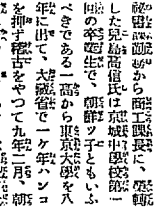 秘書課勤務から商工課長に、榮轉
した兒島高信氏は京城中學校第一
回の卒業生で、朝鮮ツ子ともいふ
べきである一高から東京大學を八
年に出て、大藏省で一ケ年ハンコ
を押す稽古をやつて九年二月、朝